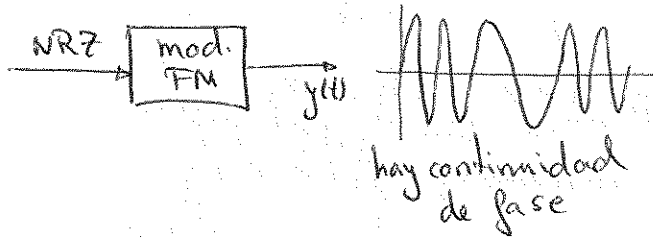 NRZ
mod.
FM
y(t)
hay continuidad
de fase